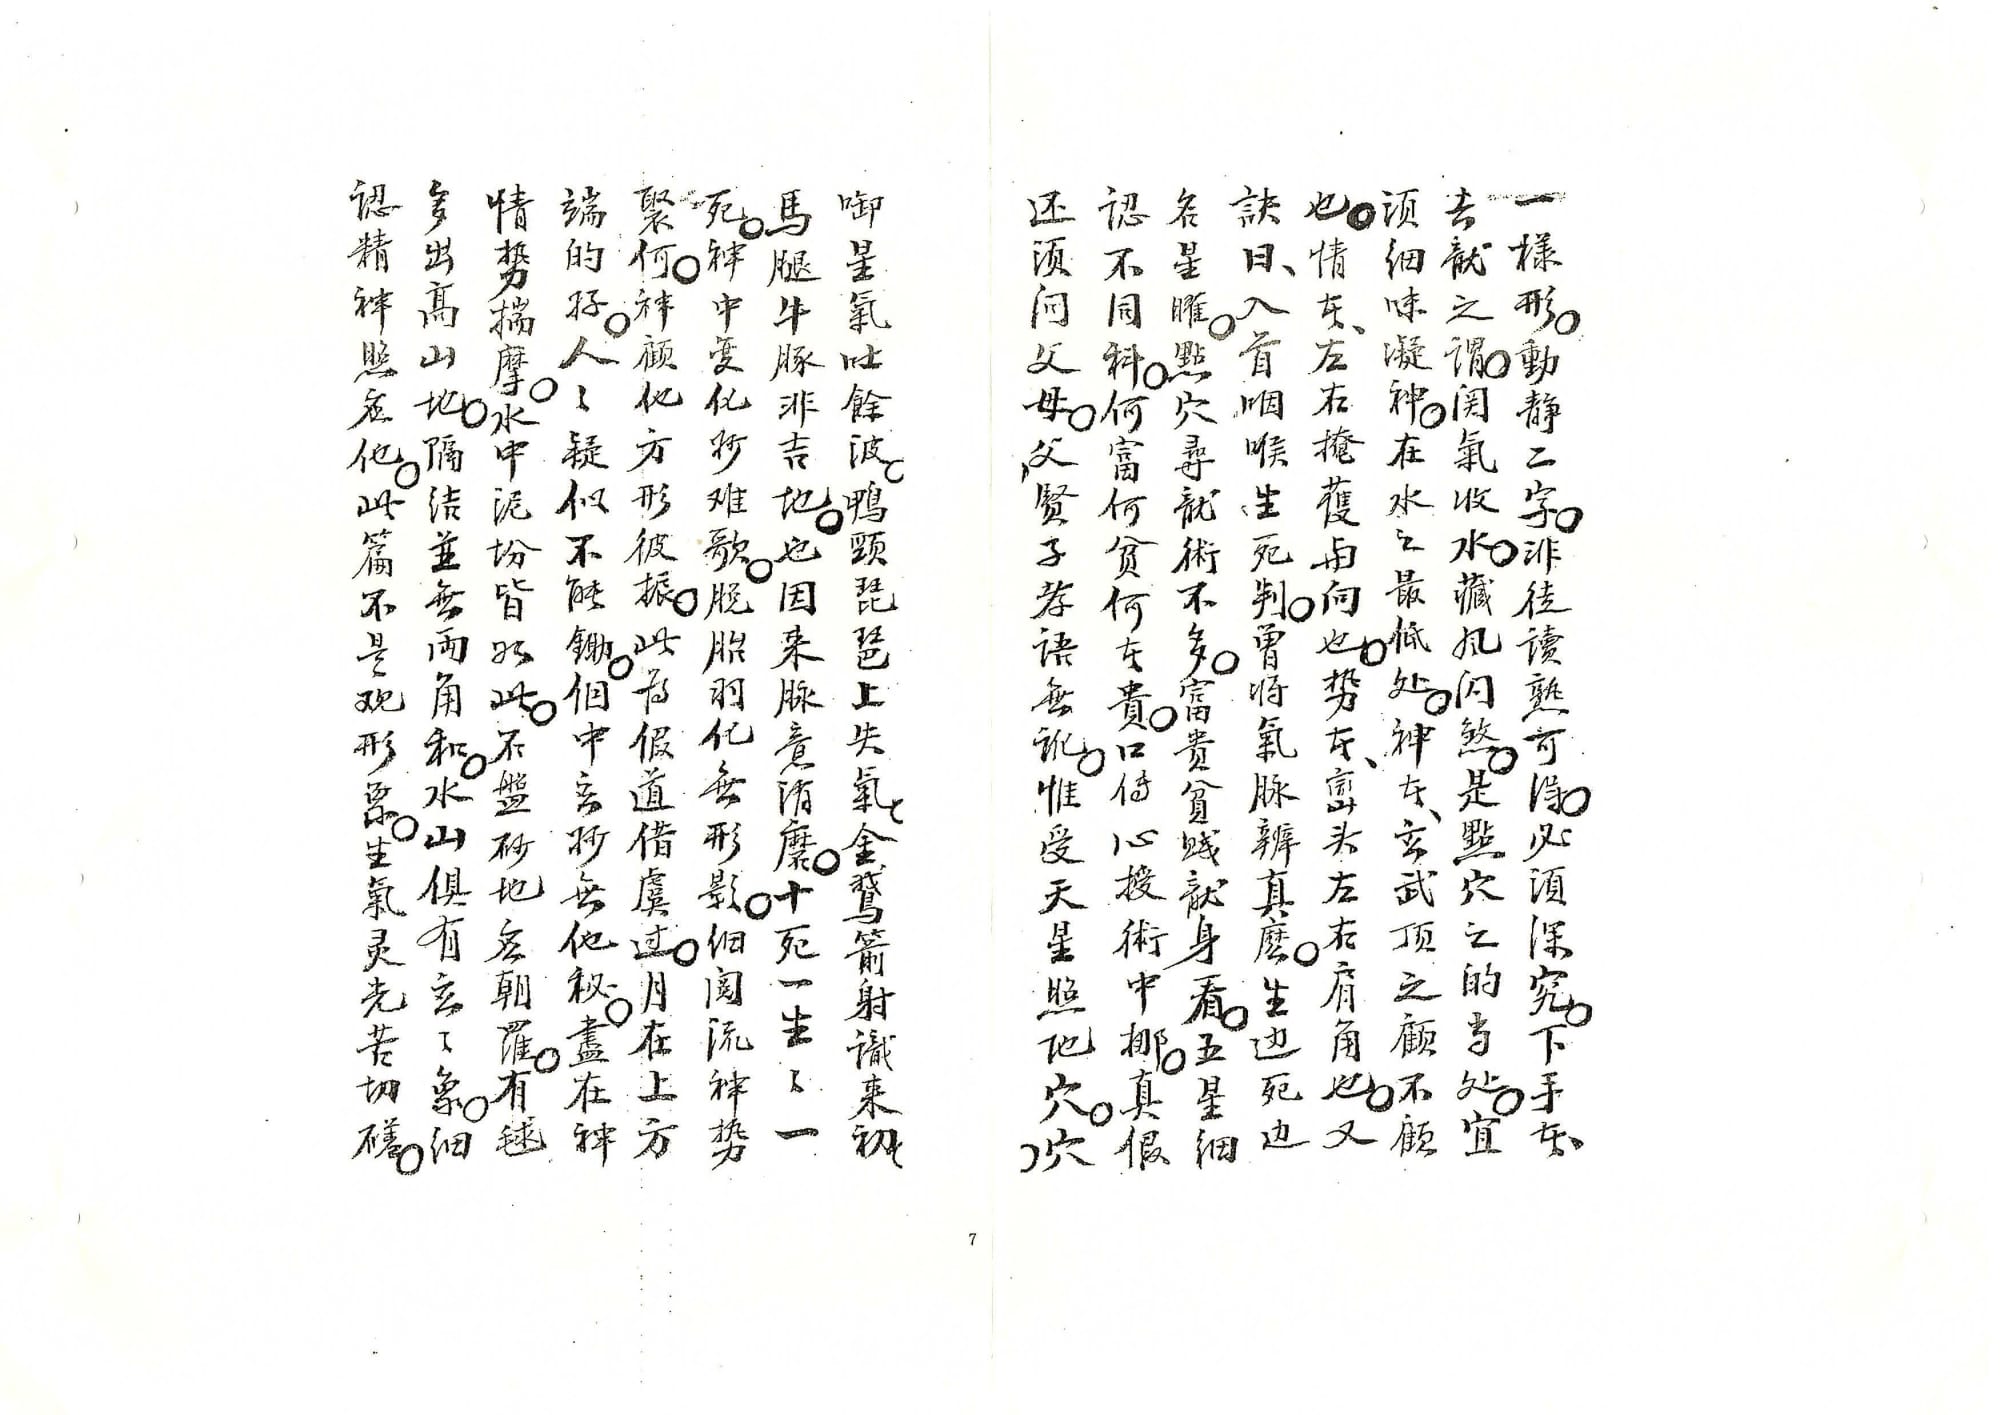 一樣形。動靜二字。非徒讀熟可得。必須深究。下手者、
去龍之謂。関氣收水。藏風閃煞。是點穴之的当处。宜
須細味凝神。在水之最低处。神者、玄武顶之顧不顧
也。情者、左右掩護与向也。势者、巒头左右肩角也。又
訣曰、入首咽喉生死判。曾将氣脉辨真麽。生边死边
名星曜。點穴尋龍術不多。富贵貧贱龍身看。五星細
認不同科。何富何貧何者貴。口传心授術中挪。真假
还须问父母。父贤子孝语無訛。惟受天星照他穴。穴
啣星氣吐餘波。鴨頸琵琶上失氣、金鵞箭射識来初、
馬腿牛豚非吉地。也因来脉意消磨。十死一生生一
死。神中变化妙难歌。脱胎羽化無形影。細阅流神势
聚何。神顧他方形彼振。此为假道借虞过。月在上方
端的好。人々疑似不能鋤。個中玄妙無他秘。盡在神
情势揣摩。水中泥坋皆如此。石盤砂地名朝羅。有毬
多出高山地。隔结並無両角和。水山俱有玄々象。細
認精神照应他。此篇不是观形票。生氣灵光苦切磋。
7